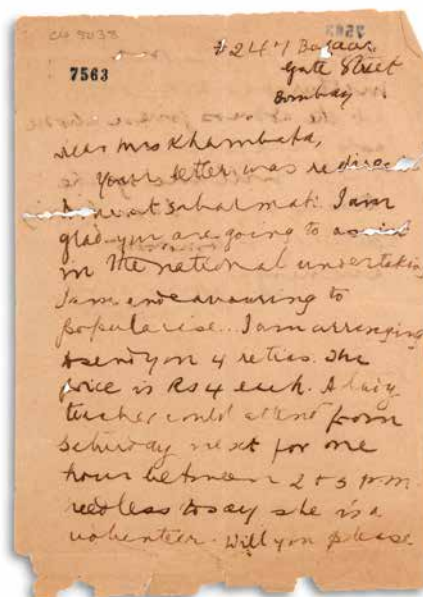 7563
# 247 Bazaar
Gate Street
Bombay
Dear Mrs Khambata,
Your letter was redirected
to me at Sabarmati. I am
glad you are going to assist
in the national undertaking
I am endeavouring to
popularise. I am arranging
to send you 4 retias. The
price is Rs 4 each. A lady
teacher could attend from
Saturday next for one
hour between 2 & 3 p.m.
needless to say she is a
volunteer. Will you please